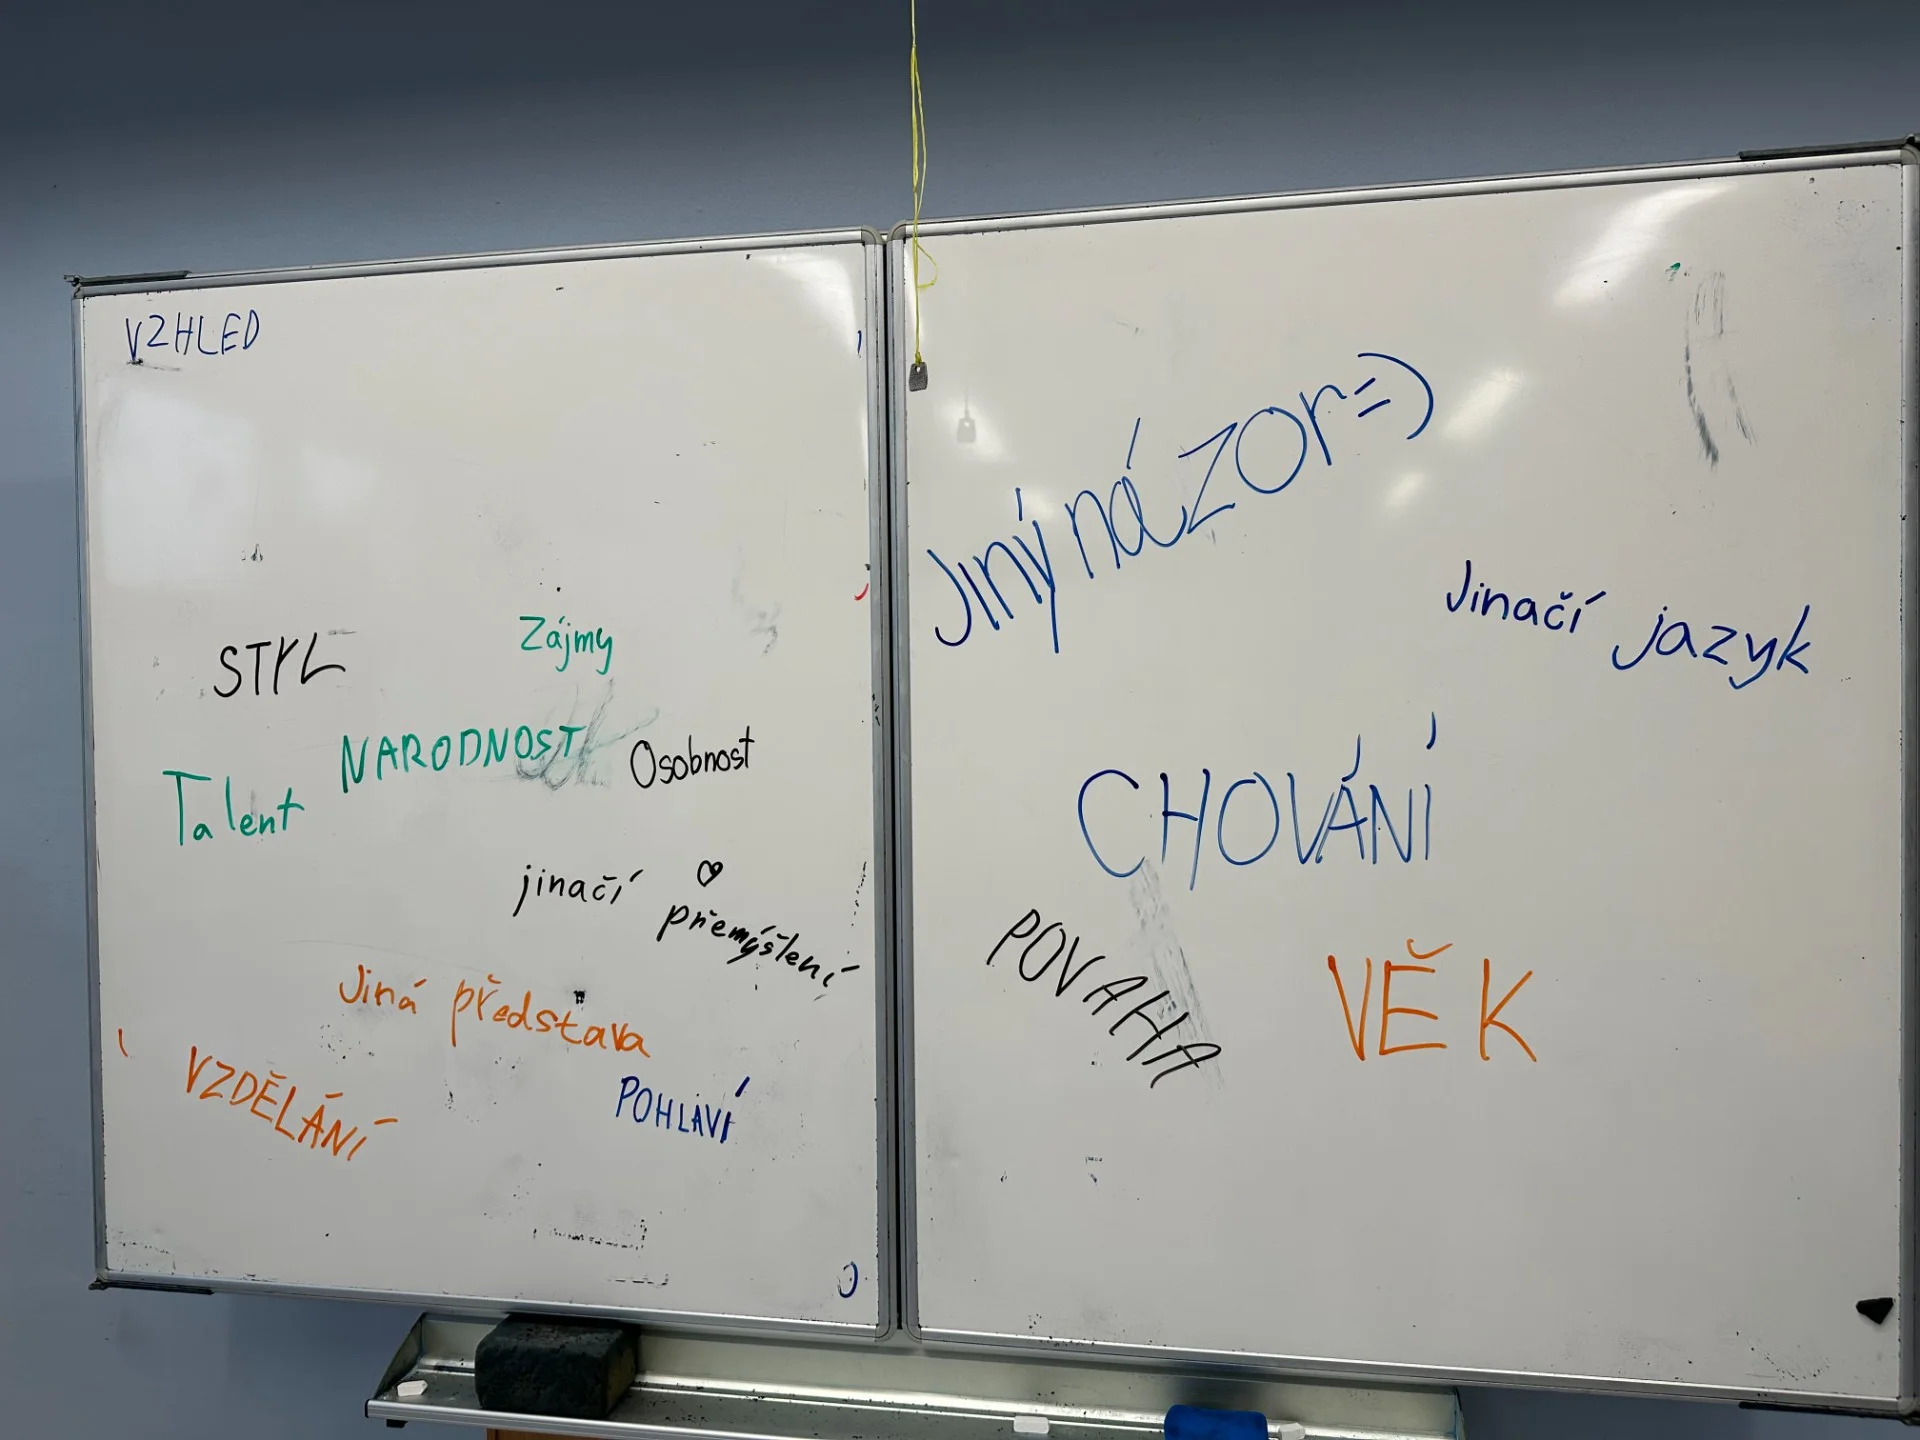 VZHLED
STYL
Zájmy
NARODNOST
Osobnost
Talent
jinačí přemýšlení
Jiná představa
VZDĚLÁNÍ
POHLAVÍ
Jiný názor =)
Jinačí jazyk
CHOVÁNÍ
POVAHA
VĚK